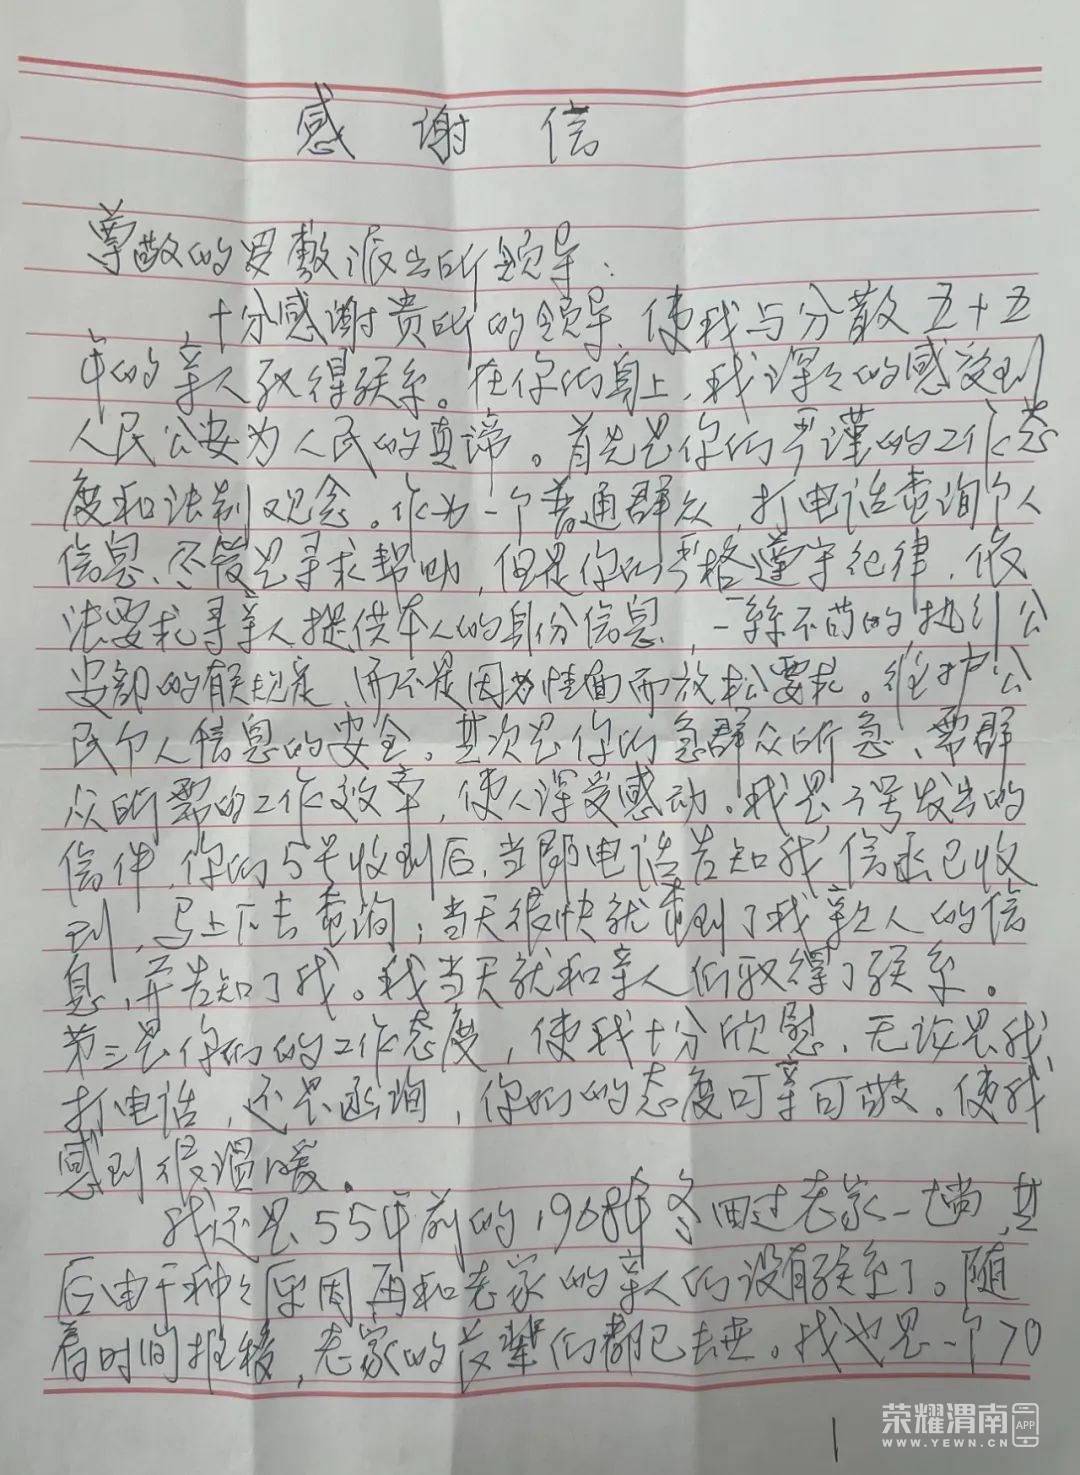 感谢信
尊敬的罗敷派出所领导:
十分感谢贵所的领导、使我与分散五十五
年的亲人取得联系。在你们身上，我深々的感受到
人民公安为人民的真谛。首先是你们严谨的工作态
度和法制观念。作为一个普通群众，打电话查询个人
信息、尽管是寻求帮助，但是你们严格遵守纪律，依
法要求寻亲人提供本人的身份信息，一丝不苟的执行公
安部的有关规定、而不是因为情面而放松要求。维护公
民个人信息的安全。其次是你们急群众所急、需群
众所需的工作效率，使人深受感动。我是3号发出的
信件，你们5号收到后，当即电话告知我信函已收
到，马上下去查询；当天很快就查到了我亲人的信
息，并告知了我。我当天就和亲人们取得了联系。
第三是你们的工作态度，使我十分欣慰，无论是我
打电话，还是函询，你们的态度可亲可敬。使我
感到很温暖。
我还是55年前的，1968年冬回过老家一趟，其
后由于种々原因再和老家的亲人们没有联系了。随
着时间推移，老家的长辈们都已去世。我也是一个70
1
荣耀渭南 APP
WWW.YEWN.CN